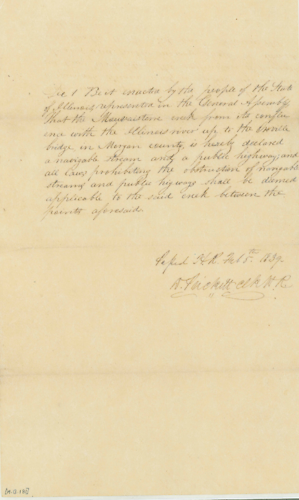 Sec 1 Be it enacted by the people of the State
of Illinois represented in the General Assembly
that the Mauvaiseterre creek from its conflu
ence with the Illinois river up to the
bridge in Morgan county, is hereby declared
a navigable stream and a public highway, and
all laws prohibiting the obstruction of navigable
streams and public highways shall be deemed
applicable to the said creek between the
points aforesaid.
Passed H.R. Feb 5th 1839.
D. Prickett Clk H.R.